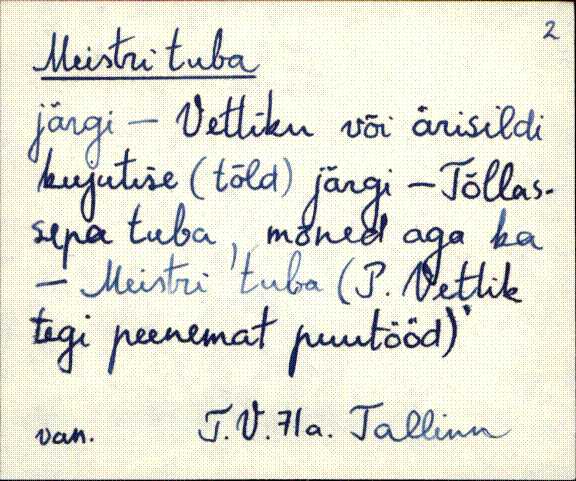 2
Meistri tuba
järgi – Vettiku või ärisildi
kujutise (tõld) järgi – Tõllas-
sepa tuba, mõned aga ka
– Meistri tuba (P. Vettik
tegi peenemat puutööd)
van. T.V. 71a. Tallinn